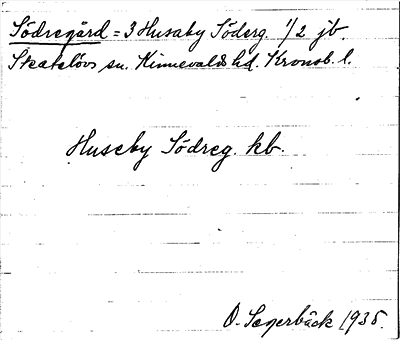 Södregård = 3 Husaby Söderg. 1/2 jb.
Skatelövs sn. Kinnevalds hd. Kronob. l.
Huseby Södreg. kb.
O. Sagerbäck 1935.